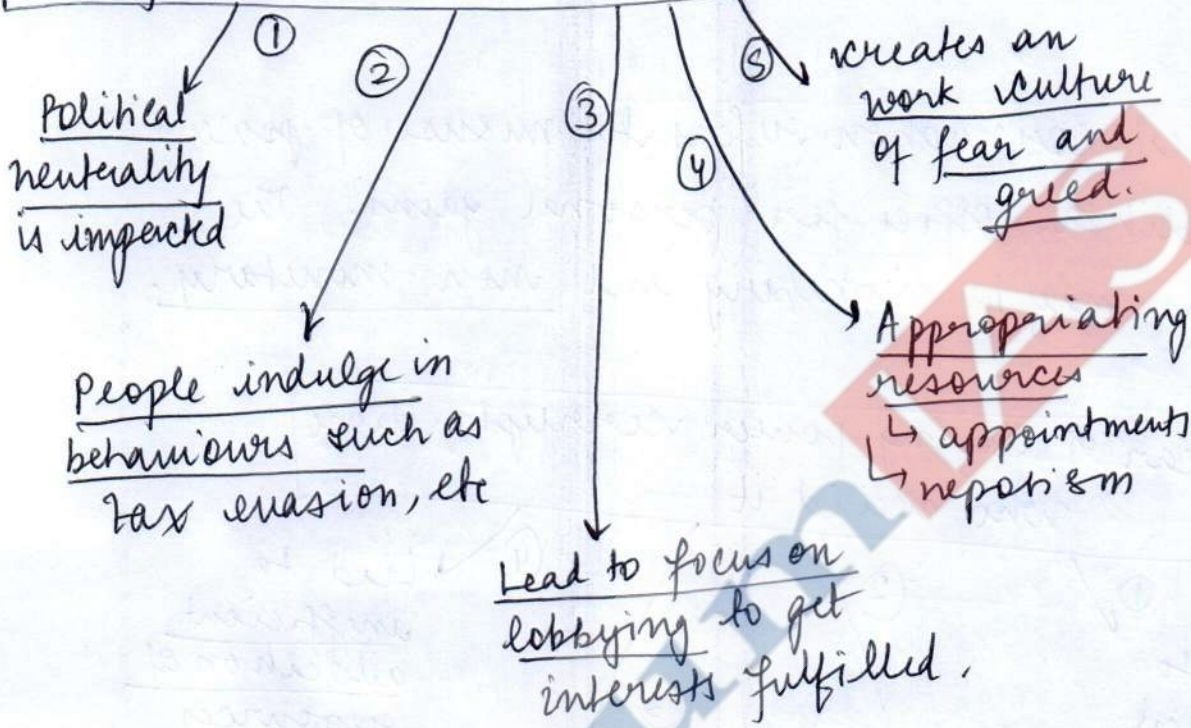 ①
Political
neutrality
is impacted
②
People indulge in
behaviours such as
tax evasion, etc
③
Lead to focus on
lobbying to get
interests fulfilled.
④
Appropriating
resources
↳ appointments
↳ nepotism
⑤
creates an
work culture
of fear and
greed.
IAS
um